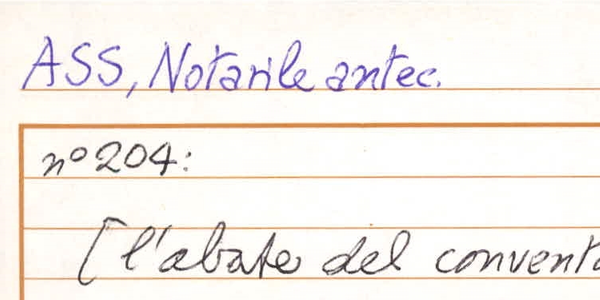 ASS, Notarile antec.
n° 204:
[l'abate del convent